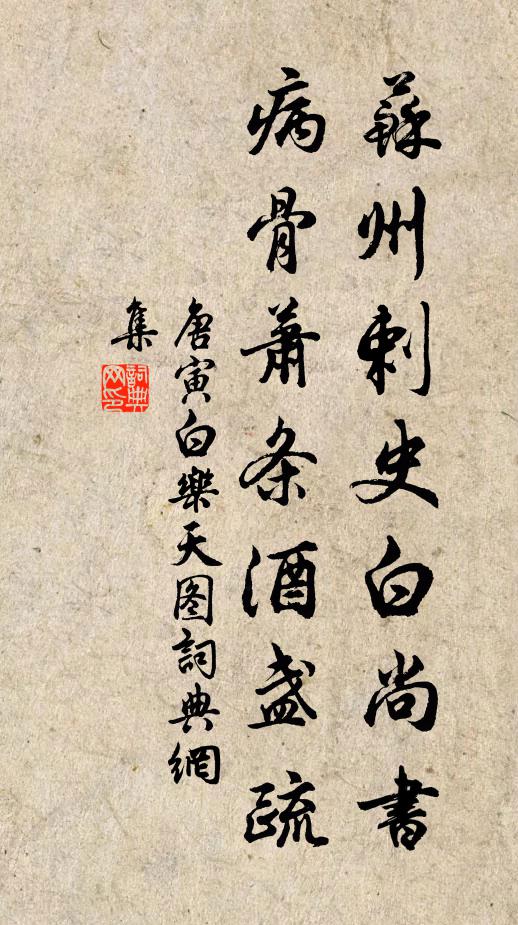 蘇州刺史白尚書
病骨蕭条酒盏疏
唐寅白樂天图詞典網
集
詞典网印